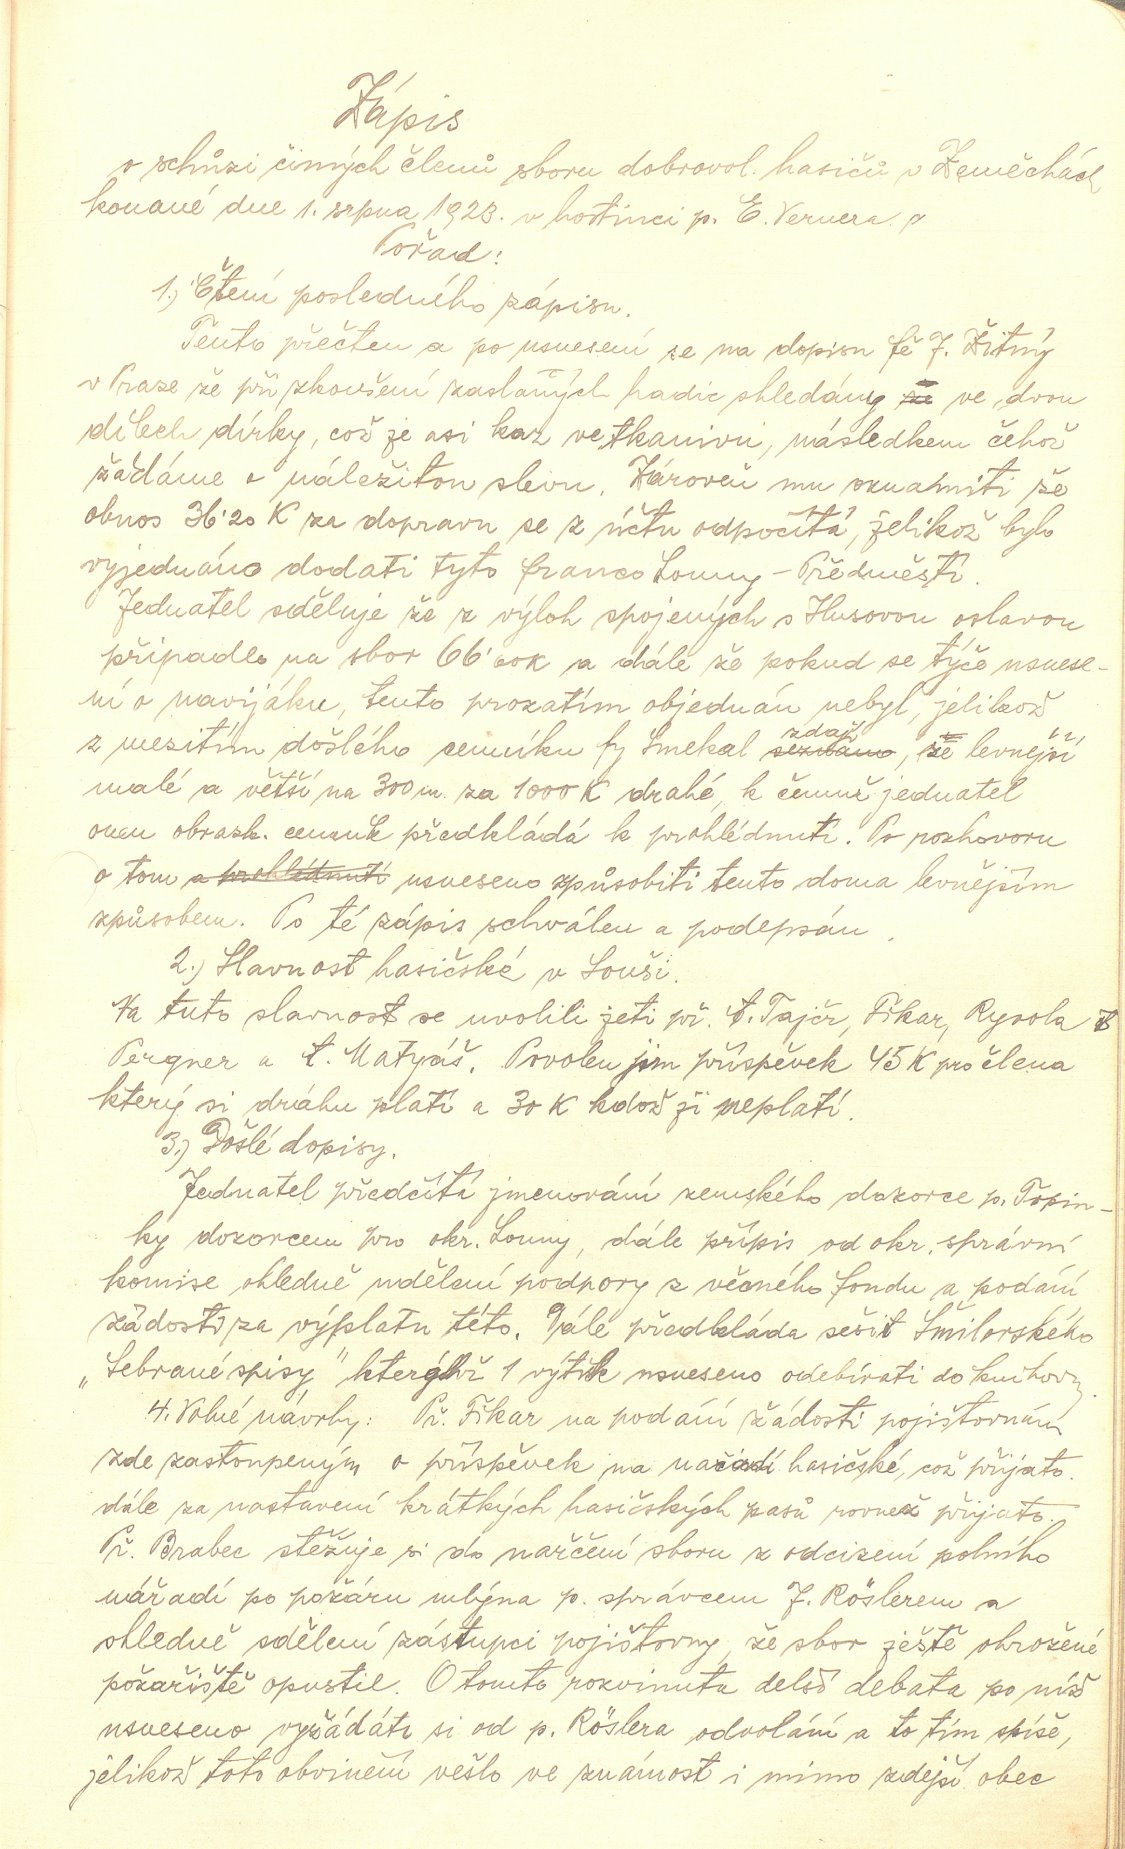 Zápis
o schůzi činných členů sboru dobrovol. hasičů v Zeměchách
konané dne 1. srpna 1923. v hostinci p. E. Vernera.
Pořad:
1.) Čtení posledního zápisu.
Tento přečten a po usnesení se na dopisu fě J. Žitný
v Praze že při zkoušení zaslaných hadic shledány že ve dvou
dílech dírky, což je asi kaz ve tkanivu, následkem čehož
žádáme o náležitou slevu. Zároveň mu oznámiti že
obnos 36'20 K za dopravu se z účtu odpočítá, jelikož bylo
vyjednáno dodati tyto franco Louny - Předměstí.
Jednatel sděluje že z výloh spojených s Husovou oslavou
připadlo na sbor 66'00K a dále že pokud se týče usnese-
ní o navijáku, tento prozatím objednán nebyl, jelikož
z mezitím došlého cenníku fy Smekal zdají, že levnější
malé a větší na 300 m za 1000 K drahé, k čemuž jednatel
onen obrazk. cenník předkládá k prohlédnutí. Po rozhovoru
o tom a prohlédnutí usneseno způsobiti tento doma levnějším
způsobem. Po té zápis schválen a podepsán.
2.) Slavnost hasičské v Souši.
Na tuto slavnost se uvolili jeti př. t. Tajčr, Fikar, Rysola
Pergner a t. Matyáš. Povolen jim příspěvek 45 K pro člena
který si dráhu platí a 30 K kdož ji neplatí.
3.) Došlé dopisy.
Jednatel předčítá jmenování zemského dozorce p. Topin-
ky dozorcem pro okr. Louny, dále přípis od okr. správní
komise ohledně udělení podpory z věcného fondu a podání
žádosti za výplatu této. Dále předkláda sešit Šmilovského
„Sebrané spisy" kterýchž 1 výtisk usneseno odebírati do knihovny.
4. Volné návrhy: Př. Fikar na podání žádosti pojišťovnám
zde zastoupeným o příspěvek na nářadí hasičské, což přijato.
dále za nastavení krátkých hasičských pasů rovněž přijato.
Př. Brabec stěžuje si do narčení sboru z odcizení polního
nářadí po požáru mlýna p. správcem J. Röslerem a
ohledně sdělení zástupci pojišťovny, že sbor ještě ohrožené
požářiště opustil. O tomto rozvinuta delší debata po níž
usneseno vyžádáti si od p. Röslera odvolání a to tím spíše,
jelikož toto obvinění vešlo ve známost i mimo zdejší obec